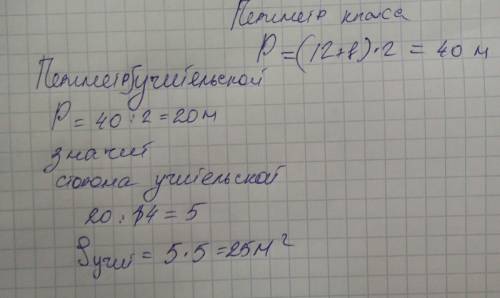 Пепиметр класа
P = (12+8)·2 = 40 м
Пепиметр учительской
P = 40 : 2 = 20 м
значит
сторона учительской
20 : 4 = 5
Sучит = 5·5 = 25 м²